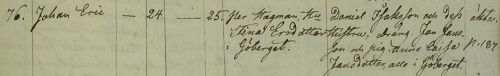 76. Johan Eric — 24. — 25. Per Hagman, Hu Daniel Isaksson och dess äkta.
Stina Ersdotter Hustru, dräng. Jan Jans
i Göberget. son och pig. Anna Caisa p. 137
Jansdotter, alla i Göberget.